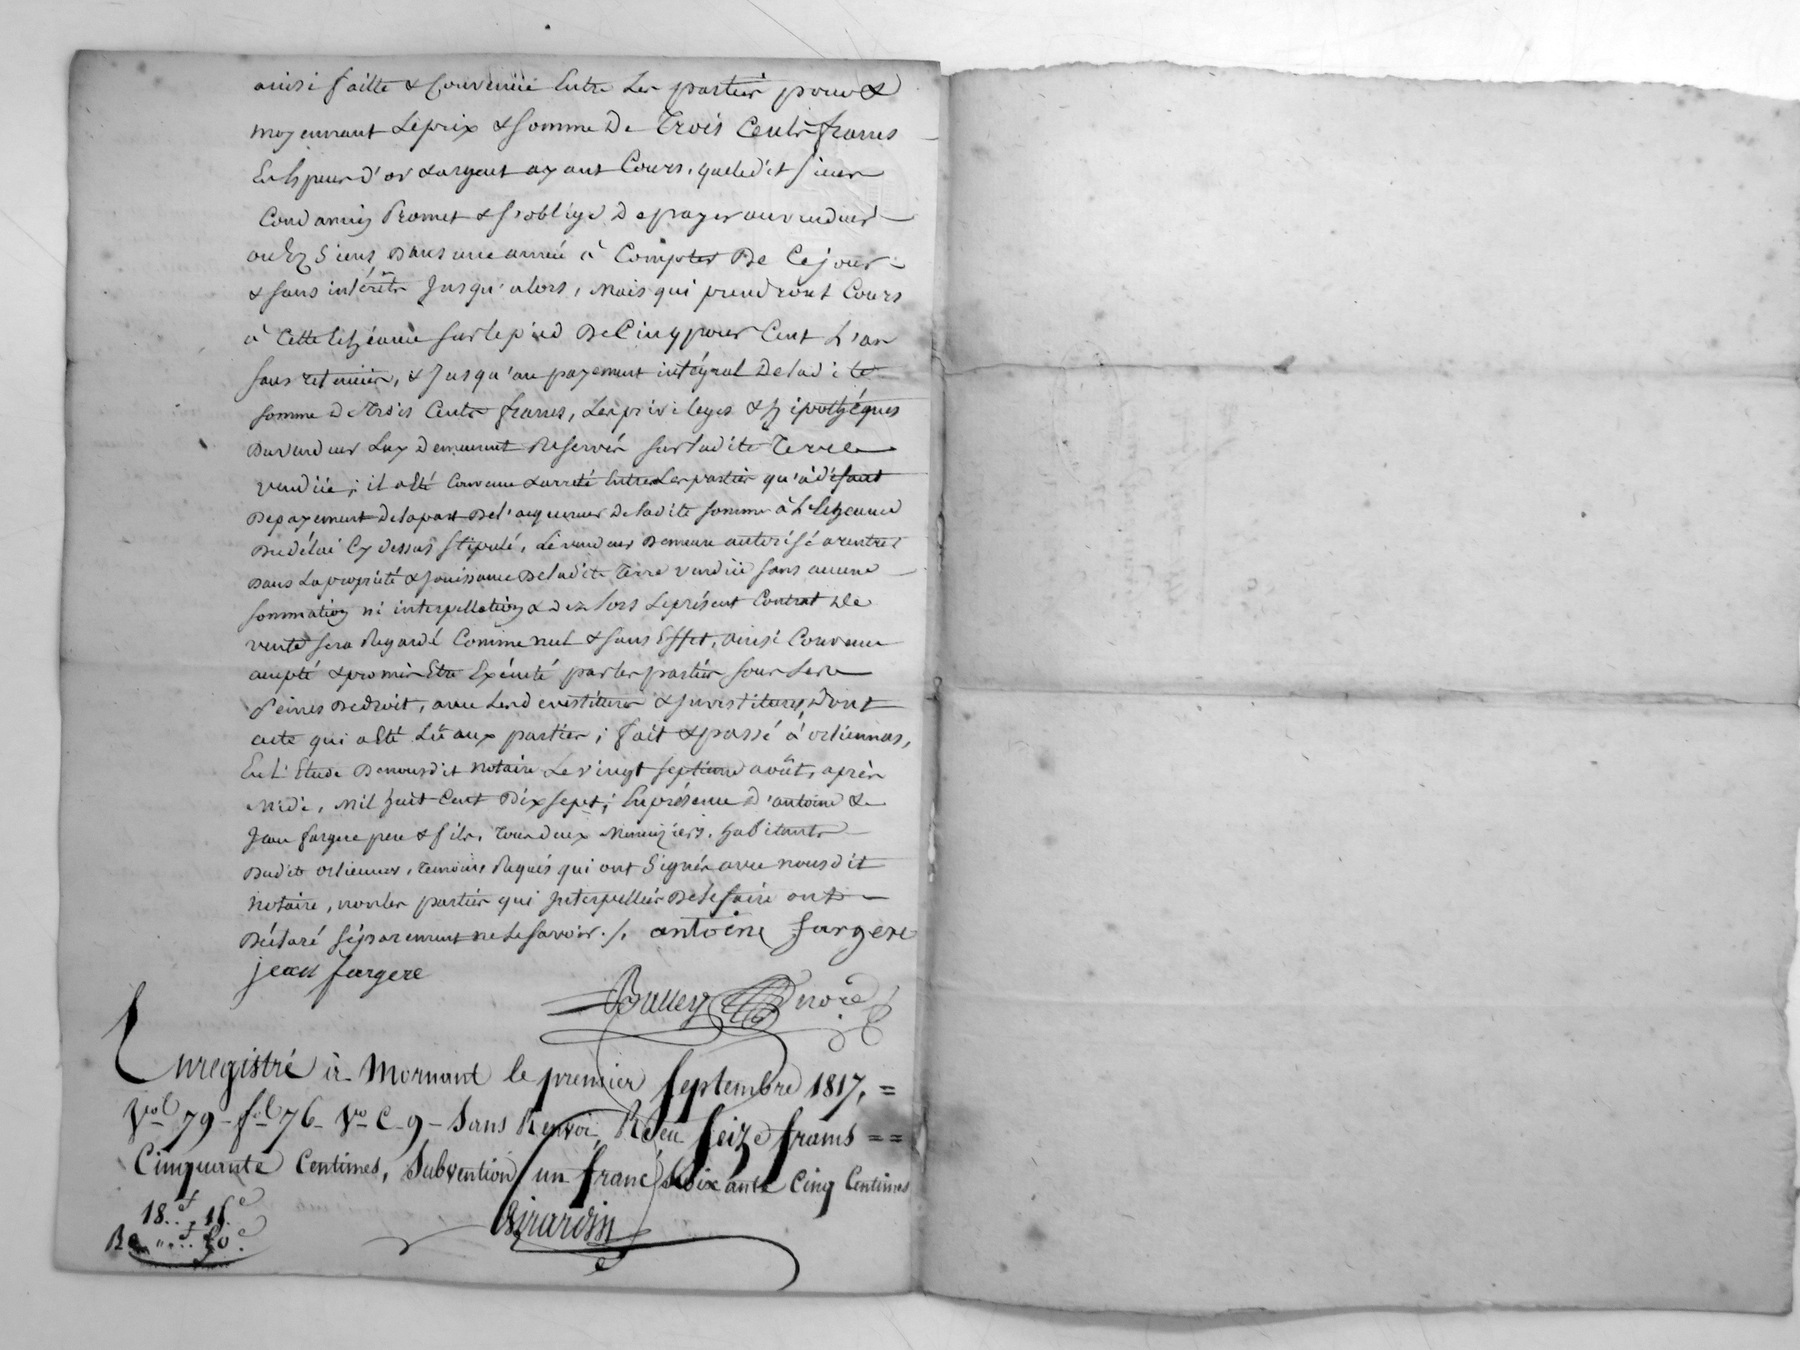 ainsi faitte & Convenüe Entre Les parties pour &
moyennant Le prix & somme De Trois Cents francs
En Especes d'or & argent ayant Cours, que led it sieur
Condamin Promet & s'oblige De payer au vendeur
ou Ez Siens Dans une année à Compter De Ce jour
& sans intérêts Jusqu'alors, Mais qui prendront Cours
à Cette Echéance sur le pied De Cinq pour Cent L'an
sans retenüe, & Jusqu'au payement intégral De ladite
somme De Trois Cents francs, Les privileges & hipothéques
Du vendeur Luy Demeurent Reservés sur ladite Terre
vendüe; il a Eté Convenu & arreté Entre Les parties qu'à défaut
De payement De la part De l'acquereur De ladite somme à L'Echeance
Du délai Cy dessus stipulé, Le vendeur Demeure autorisé a rentrer
Dans La propriété & Jouissance De ladite Terre vendüe sans aucune
sommation ni interpellation & Dez lors Le présent Contrat De
vente sera Regardé Comme nul & sans Effet, ainsi Convenu
accepté & promis Etre Exécuté par les parties sous Les
Peines De droit, avec Les d evestitures & Jnvestitures, Dont
acte qui a Eté Lû aux parties; fait & passé à orlienas,
En L'Etude De nousdit Notaire Le vingt septieme août, après
Midi, Mil huit Cent Dix sept; En présence D'antoine &
Jean fargere pere & fils, Tous deux Menuiziers, habitants
Dudit orlienas, Temoins Requis qui ont Signés avec nousdit
Notaire, non les parties qui Jnterpellées De le faire ont
Déclaré séparement ne Le savoir ./. antoine fargere
jean fargere
Enregistré à Mornant le premier septembre 1817, =
Vol 79 - fol 76 - Vo C. 9 - Sans Renvoi, Reçu seize francs = =
Cinquante Centimes, Subvention un franc soixante Cinq Centimes
18..f 15.c
Girardin